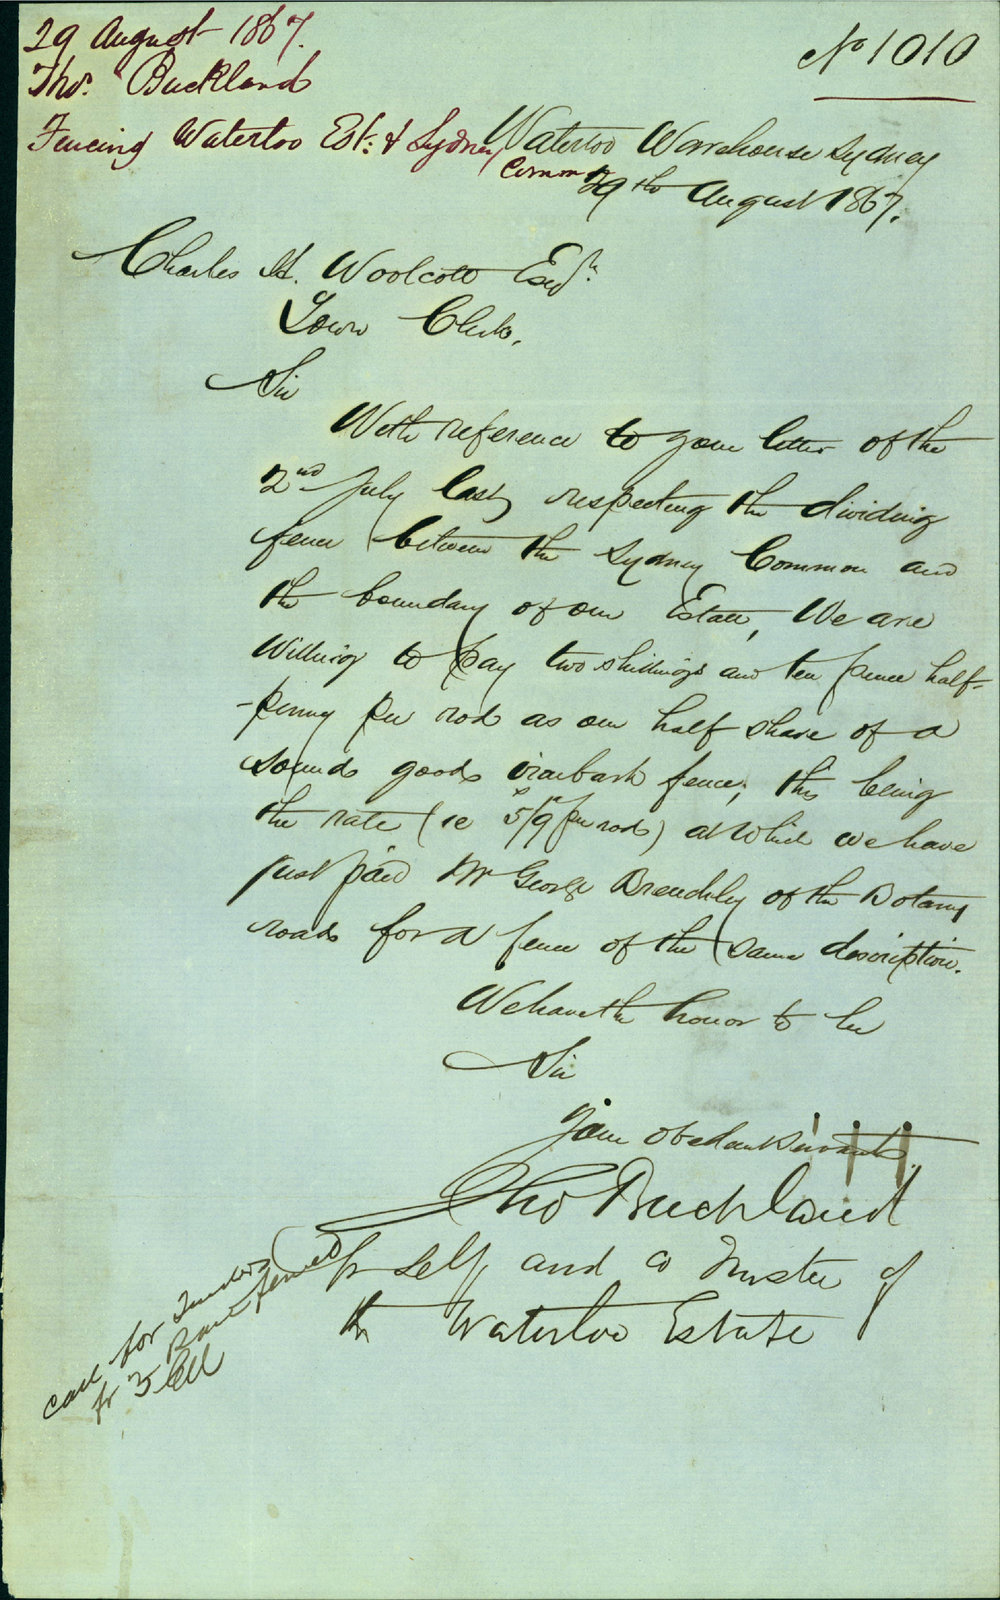 29 August 1867.
Thos. Buckland
Fencing Waterloo Est: & Sydney
Common
No 1010
Waterloo Warehouse Sydney
29th August 1867.
Charles H. Woolcott Esqr.
Town Clerk,
Sir
With reference to your letter of the
2nd July last, respecting the dividing
fence between the Sydney Common and
the boundary of our Estate, We are
Willing to pay two shillings and ten pence half-
-penny per rod as our half share of a
sound good ironbark fence; this being
the rate (ie 5/9 per rod) at which we have
just paid Mr George Breuchley of the Botany
road for a fence of the same description.
We have the honor to be
Sir
Your obedient Servants
Tho Buckland
for self and co Trustee of
the Waterloo Estate
Call for Tenders
for 3 Rail fence